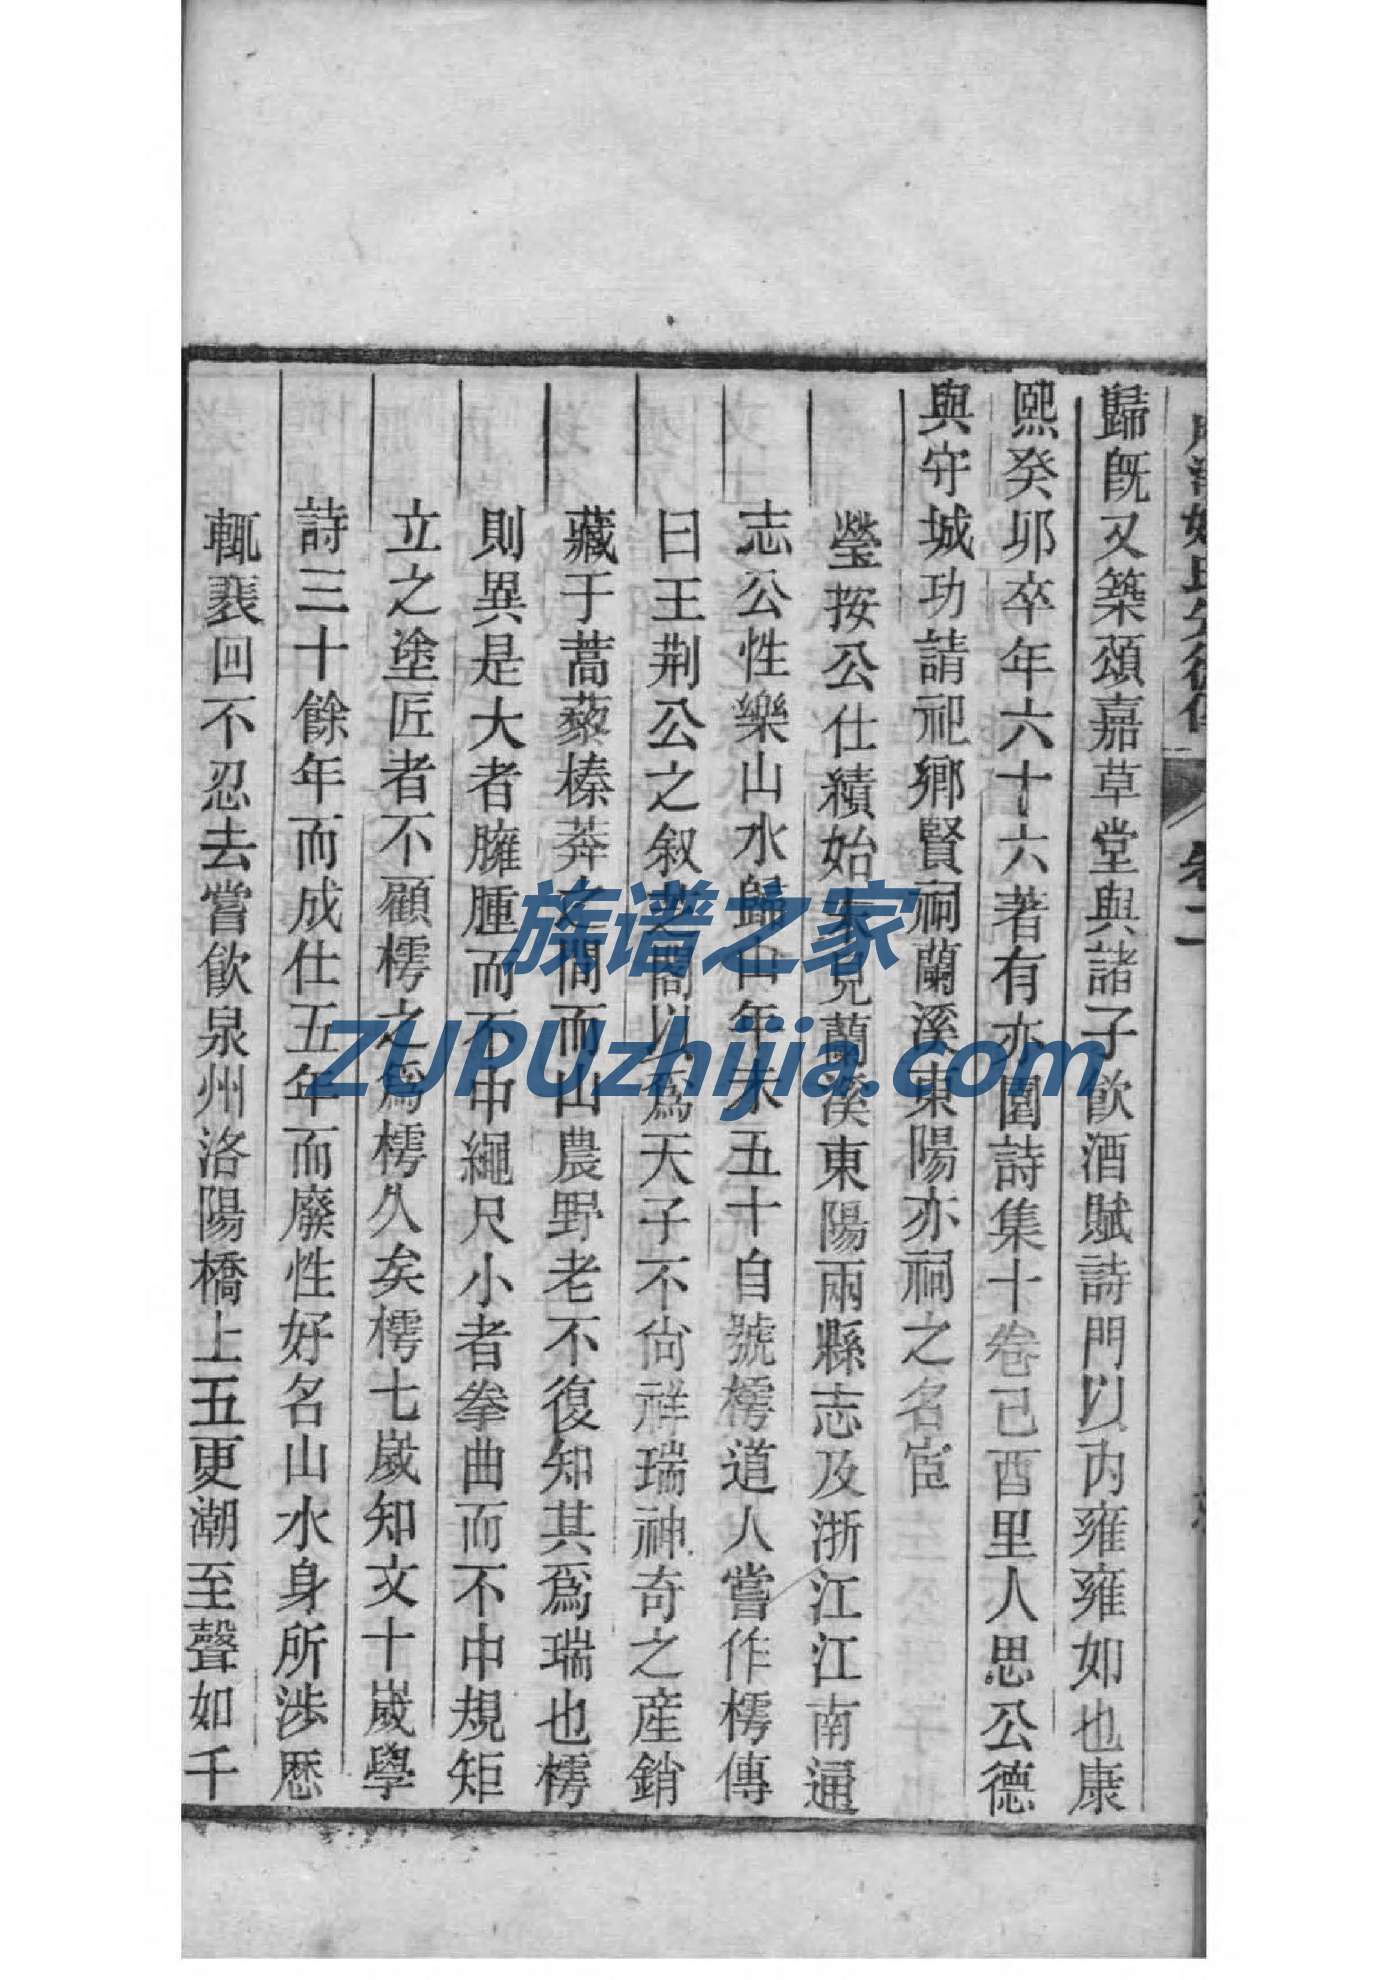 歸既又築頌嘉草堂與諸子飲酒賦詩門以內雍雍如也康
熙癸卯卒年六十六著有亦園詩集十卷己酉里人思公德
與守城功請祀鄉賢祠蘭溪東陽亦祠之名宦
瑩按公仕績始末見蘭溪東陽兩縣志及浙江江南通
志公性樂山水歸田年未五十自號樗道人嘗作樗傳
曰王荆公之叙芝閣以爲天子不尚祥瑞神奇之産銷
藏于蒿藜榛莽之間而山農野老不復知其爲瑞也樗
則異是大者臃腫而不中繩尺小者拳曲而不中規矩
立之塗匠者不顧樗之爲樗久矣樗七歲知文十歲學
詩三十餘年而成仕五年而廢性好名山水身所涉歷
輒裴回不忍去嘗飲泉州洛陽橋上五更潮至聲如千
姚氏先德傳
卷二
族谱之家
ZUPUzhijia.com